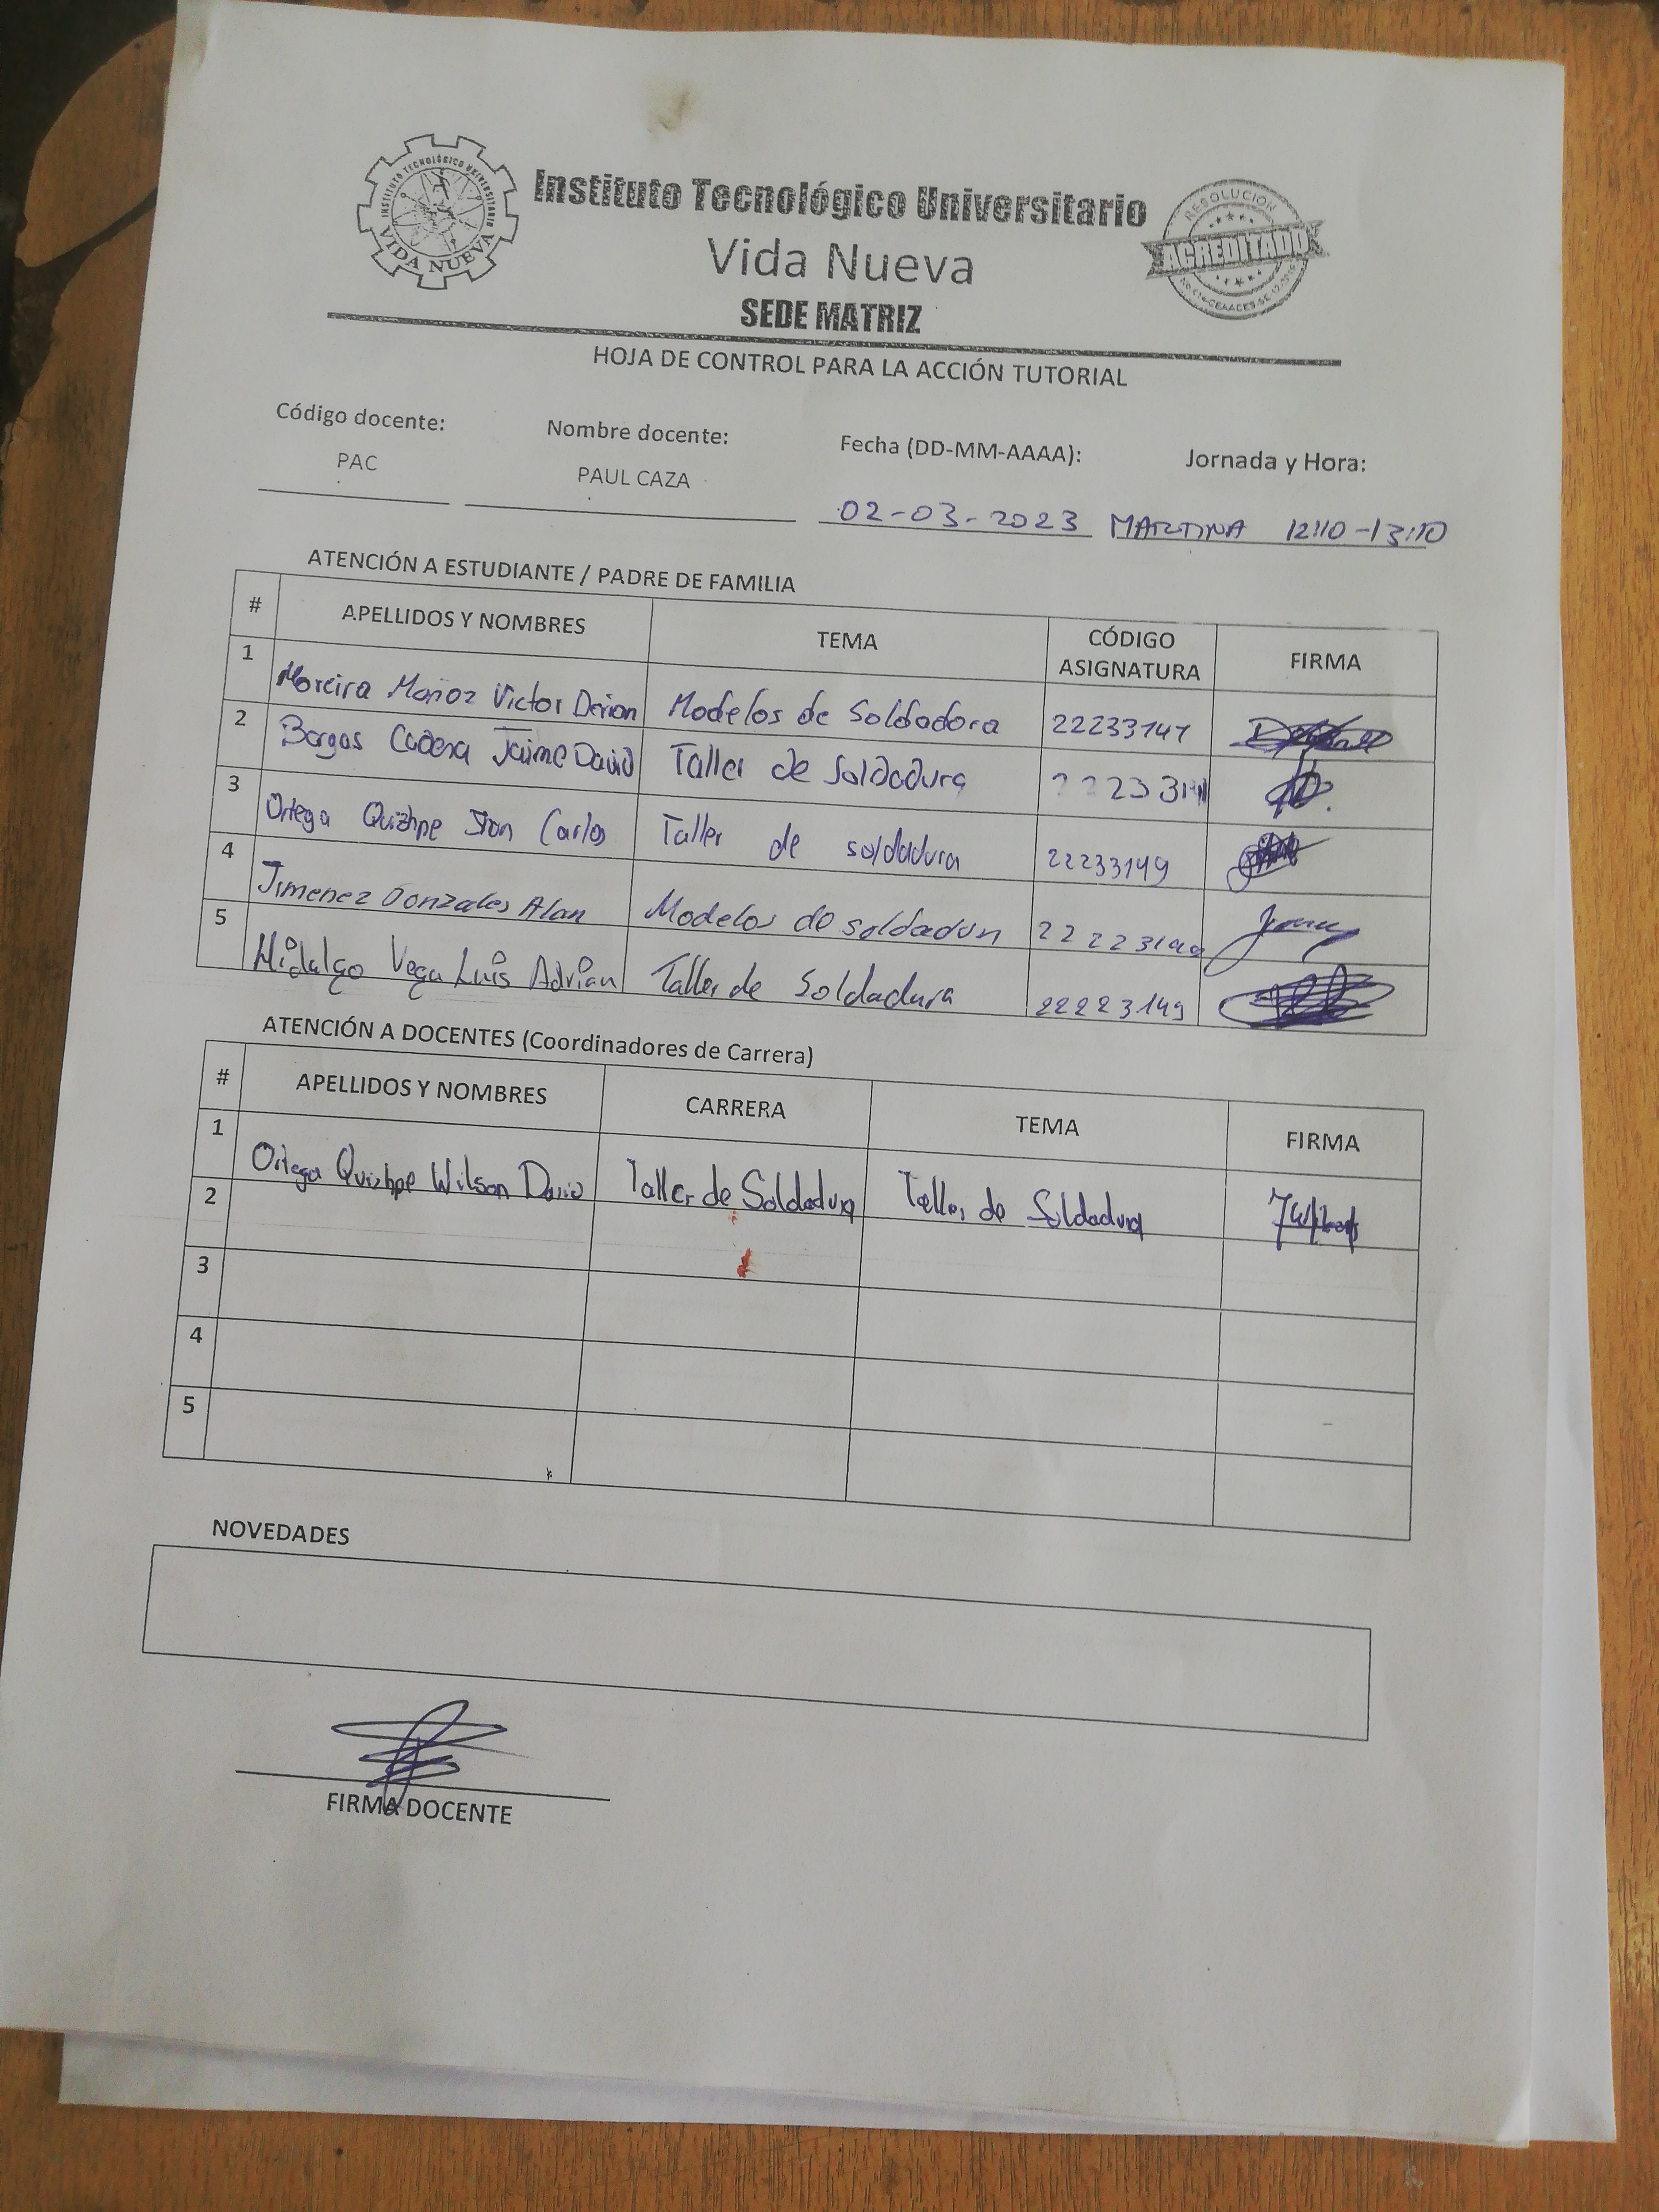 INSTITUTO TECNOLÓGICO UNIVERSITARIO
VIDA NUEVA
Instituto Tecnológico Universitario
Vida Nueva
SEDE MATRIZ
RESOLUCIÓN
ACREDITADO
HOJA DE CONTROL PARA LA ACCIÓN TUTORIAL
Código docente: Nombre docente: Fecha (DD-MM-AAAA): Jornada y Hora:
PAC PAUL CAZA 02-03-2023 MARTINA 12:10-13:10
ATENCIÓN A ESTUDIANTE / PADRE DE FAMILIA
# APELLIDOS Y NOMBRES TEMA CÓDIGO ASIGNATURA FIRMA
1 Moreira Muñoz Victor Derian Modelos de Soldadora 22233147
2 Bargas Cadena Jaime David Taller de Soldadura
3 Ortega Quizhpe Jhon Carlos Taller de soldadura 22233149
4 Jimenez Gonzales Alan Modelos de soldadun
5 Hidalgo Vega Luis Adrian Taller de Soldadura 22223149
ATENCIÓN A DOCENTES (Coordinadores de Carrera)
# APELLIDOS Y NOMBRES CARRERA TEMA FIRMA
1 Ortega Quizhpe Wilson Dario Taller de Soldadura Taller de Soldadura
2
3
4
5
NOVEDADES
FIRMA DOCENTE